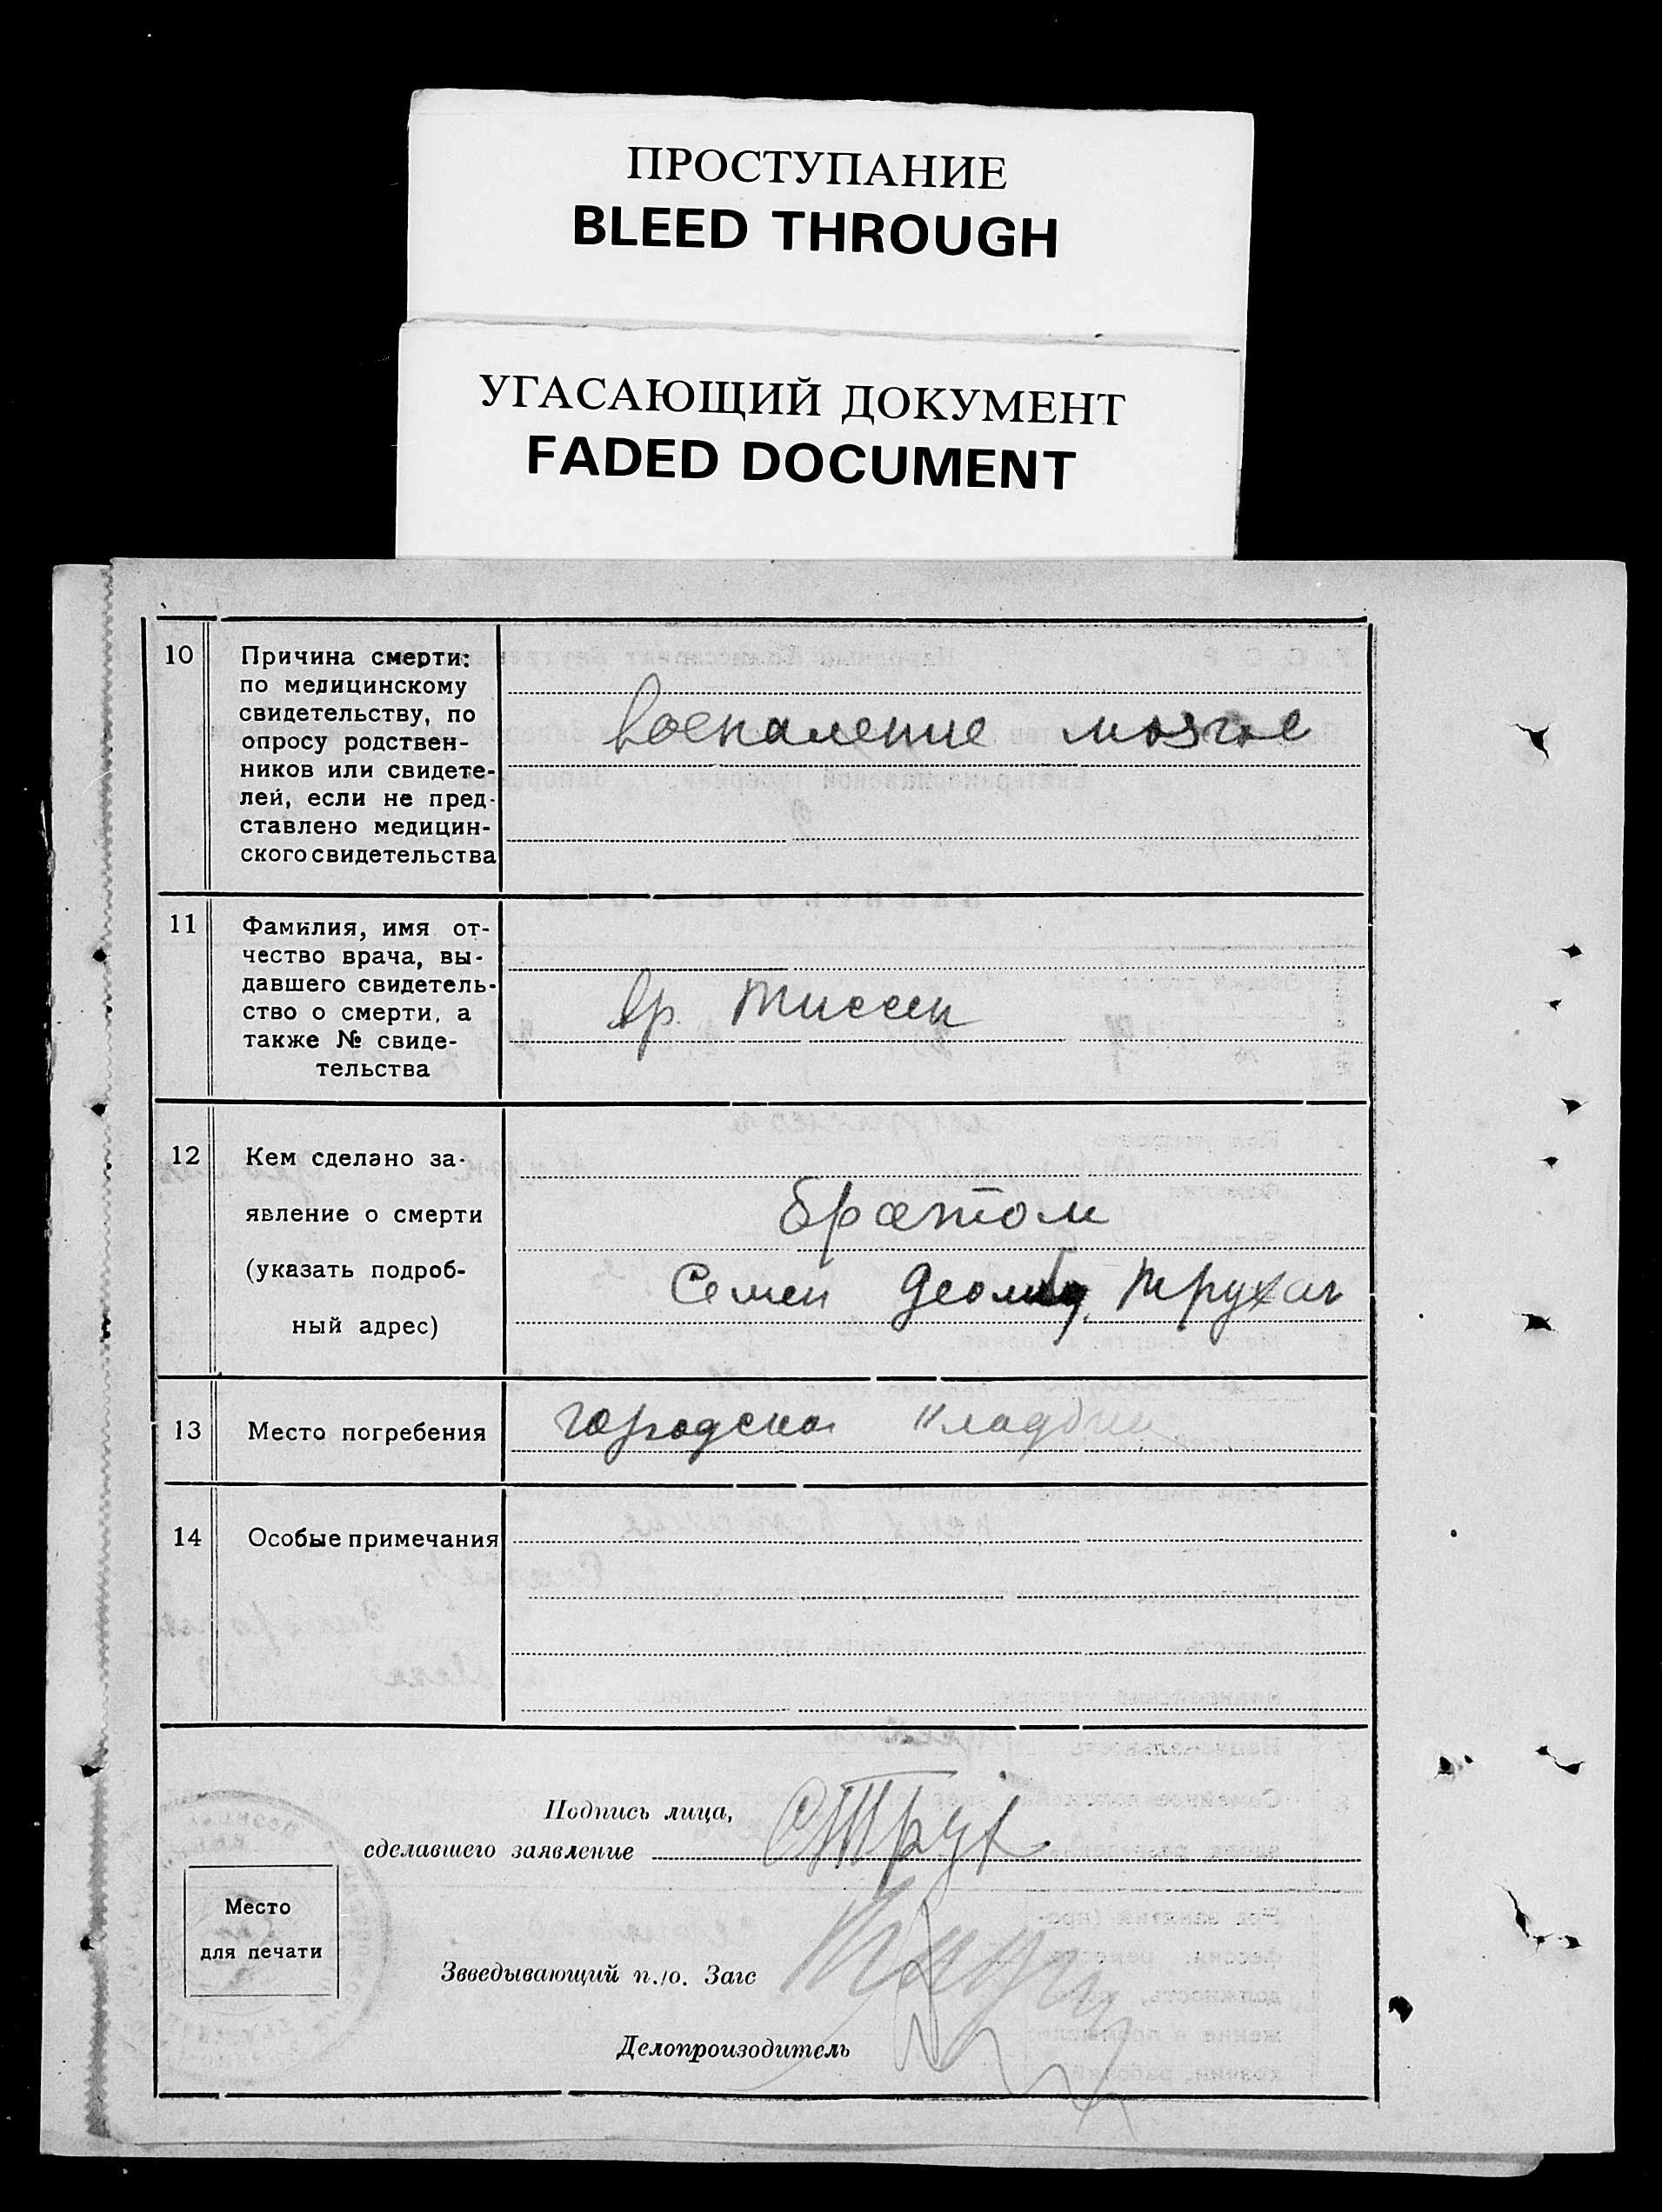 ПРОСТУПАНИЕ
BLEED THROUGH
УГАСАЮЩИЙ ДОКУМЕНТ
FADED DOCUMENT
10
Причина смерти:
по медицинскому
свидетельству, по
опросу родствен-
ников или свидете-
лей, если не пред-
ставлено медицин-
ского свидетельства
воспаление мозга
11
Фамилия, имя от-
чество врача, вы-
давшего свидетель-
ство о смерти, а
также № свиде-
тельства
вр. Тиссен
12
Кем сделано за-
явление о смерти
(указать подроб-
ный адрес)
братом
Семен Трухан
13
Место погребения
городско кладби
14
Особые примечания
Подпись лица,
сделавшего заявление
СТрух
Место
для печати
Звведывающий п./о. Загс
Делопроизодитель